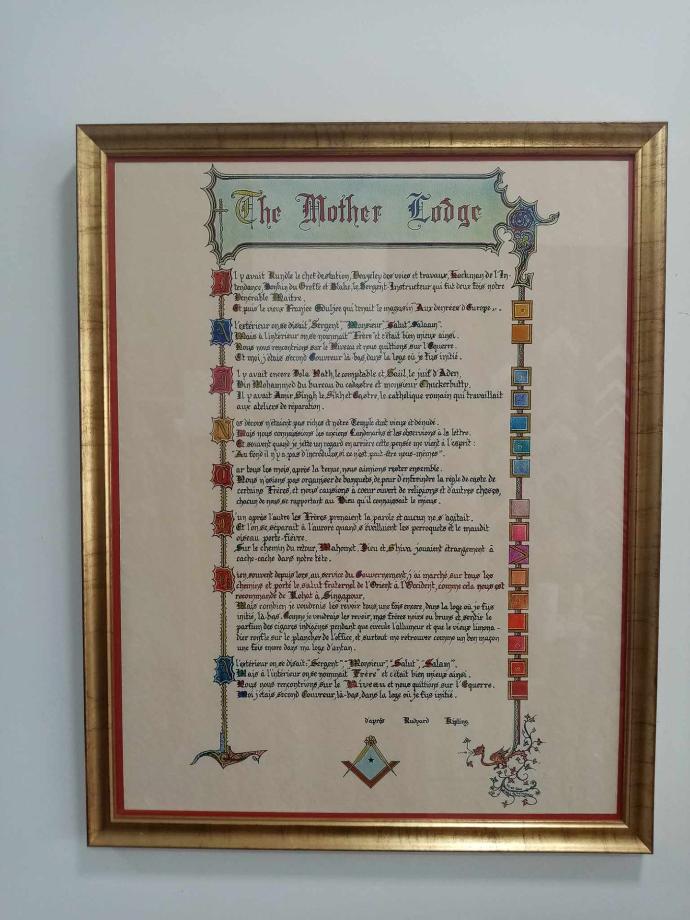 The Mother Lodge
Il y avait Rundle le chef de station, Beazeley des voies et travaux, Hackman de l'In-
tendance, Donkin du Greffe et Blake, le Sergent Instructeur qui fut deux fois notre
Vénérable Maître.
Et puis le vieux Franjee Eduljee qui tenait le magasin "Aux denrées d'Europe".
A l'extérieur on se disait, "Sergent", "Monsieur", "Salut", "Salaam".
Mais à l'intérieur on se nommait "Frère" et c'était bien mieux ainsi.
Nous nous rencontrions sur le Niveau et nous quittions sur l'Equerre.
Et moi, j'étais second Couvreur là-bas, dans la loge où je fus initié.
Il y avait encore Bola Nath, le comptable et, Saül, le juif d'Aden,
Din Mohammed du bureau du cadastre et monsieur Chuckerbutty,
Il y avait Amir Singh le Sikh et Castro, le catholique romain qui travaillait
aux ateliers de réparation.
Nos décors n'étaient pas riches et notre Temple était vieux et dénudé.
Mais nous connaissions les anciens Landmarks et les observions à la lettre.
Et souvent quand je jette un regard en arrière cette pensée me vient à l'esprit :
"Au fond il n'y a pas d'incrédules, si ce n'est peut-être nous-mêmes".
Car tous les mois, après la tenue, nous aimions rester ensemble.
Nous n'osions pas organiser de banquets de peur d'enfreindre la règle de caste de
certains Frères, et nous causions à cœur ouvert de religions et d'autres choses,
chacun de nous se rapportant au Dieu qu'il connaissait le mieux.
L'un après l'autre les Frères prenaient la parole et aucun ne s'agitait.
Et l'on se séparait à l'aurore quand s'éveillaient les perroquets et le maudit
oiseau porte-fièvre.
Sur le chemin du retour, Mahomet, Dieu et Shiva jouaient étrangement à
cache-cache dans notre tête.
Bien souvent depuis lors, au service du Gouvernement, j'ai marché sur tous les
chemins et porté le salut fraternel de l'Orient à l'Occident, comme cela nous est
recommandé de Kohat à Singapour.
Mais combien je voudrais les revoir tous, une fois encore, dans la loge où je fus
initié, là-bas. Comme je voudrais les revoir, mes frères noirs ou bruns et sentir le
parfum des cigares indigènes pendant que circule l'allumeur et que le vieux limona-
dier ronfle sur le plancher de l'office, et surtout me retrouver comme un bon maçon
une fois encore dans ma loge d'antan.
A l'extérieur on se disait : "Sergent", "Monsieur", "Salut", "Salam",
Mais à l'intérieur on se nommait "Frère" et c'était bien mieux ainsi.
Nous nous rencontrions sur le Niveau et nous quittions sur l'Equerre.
Moi j'étais second Couvreur, là-bas, dans la loge où je fus initié.
d'après Rudyard Kipling